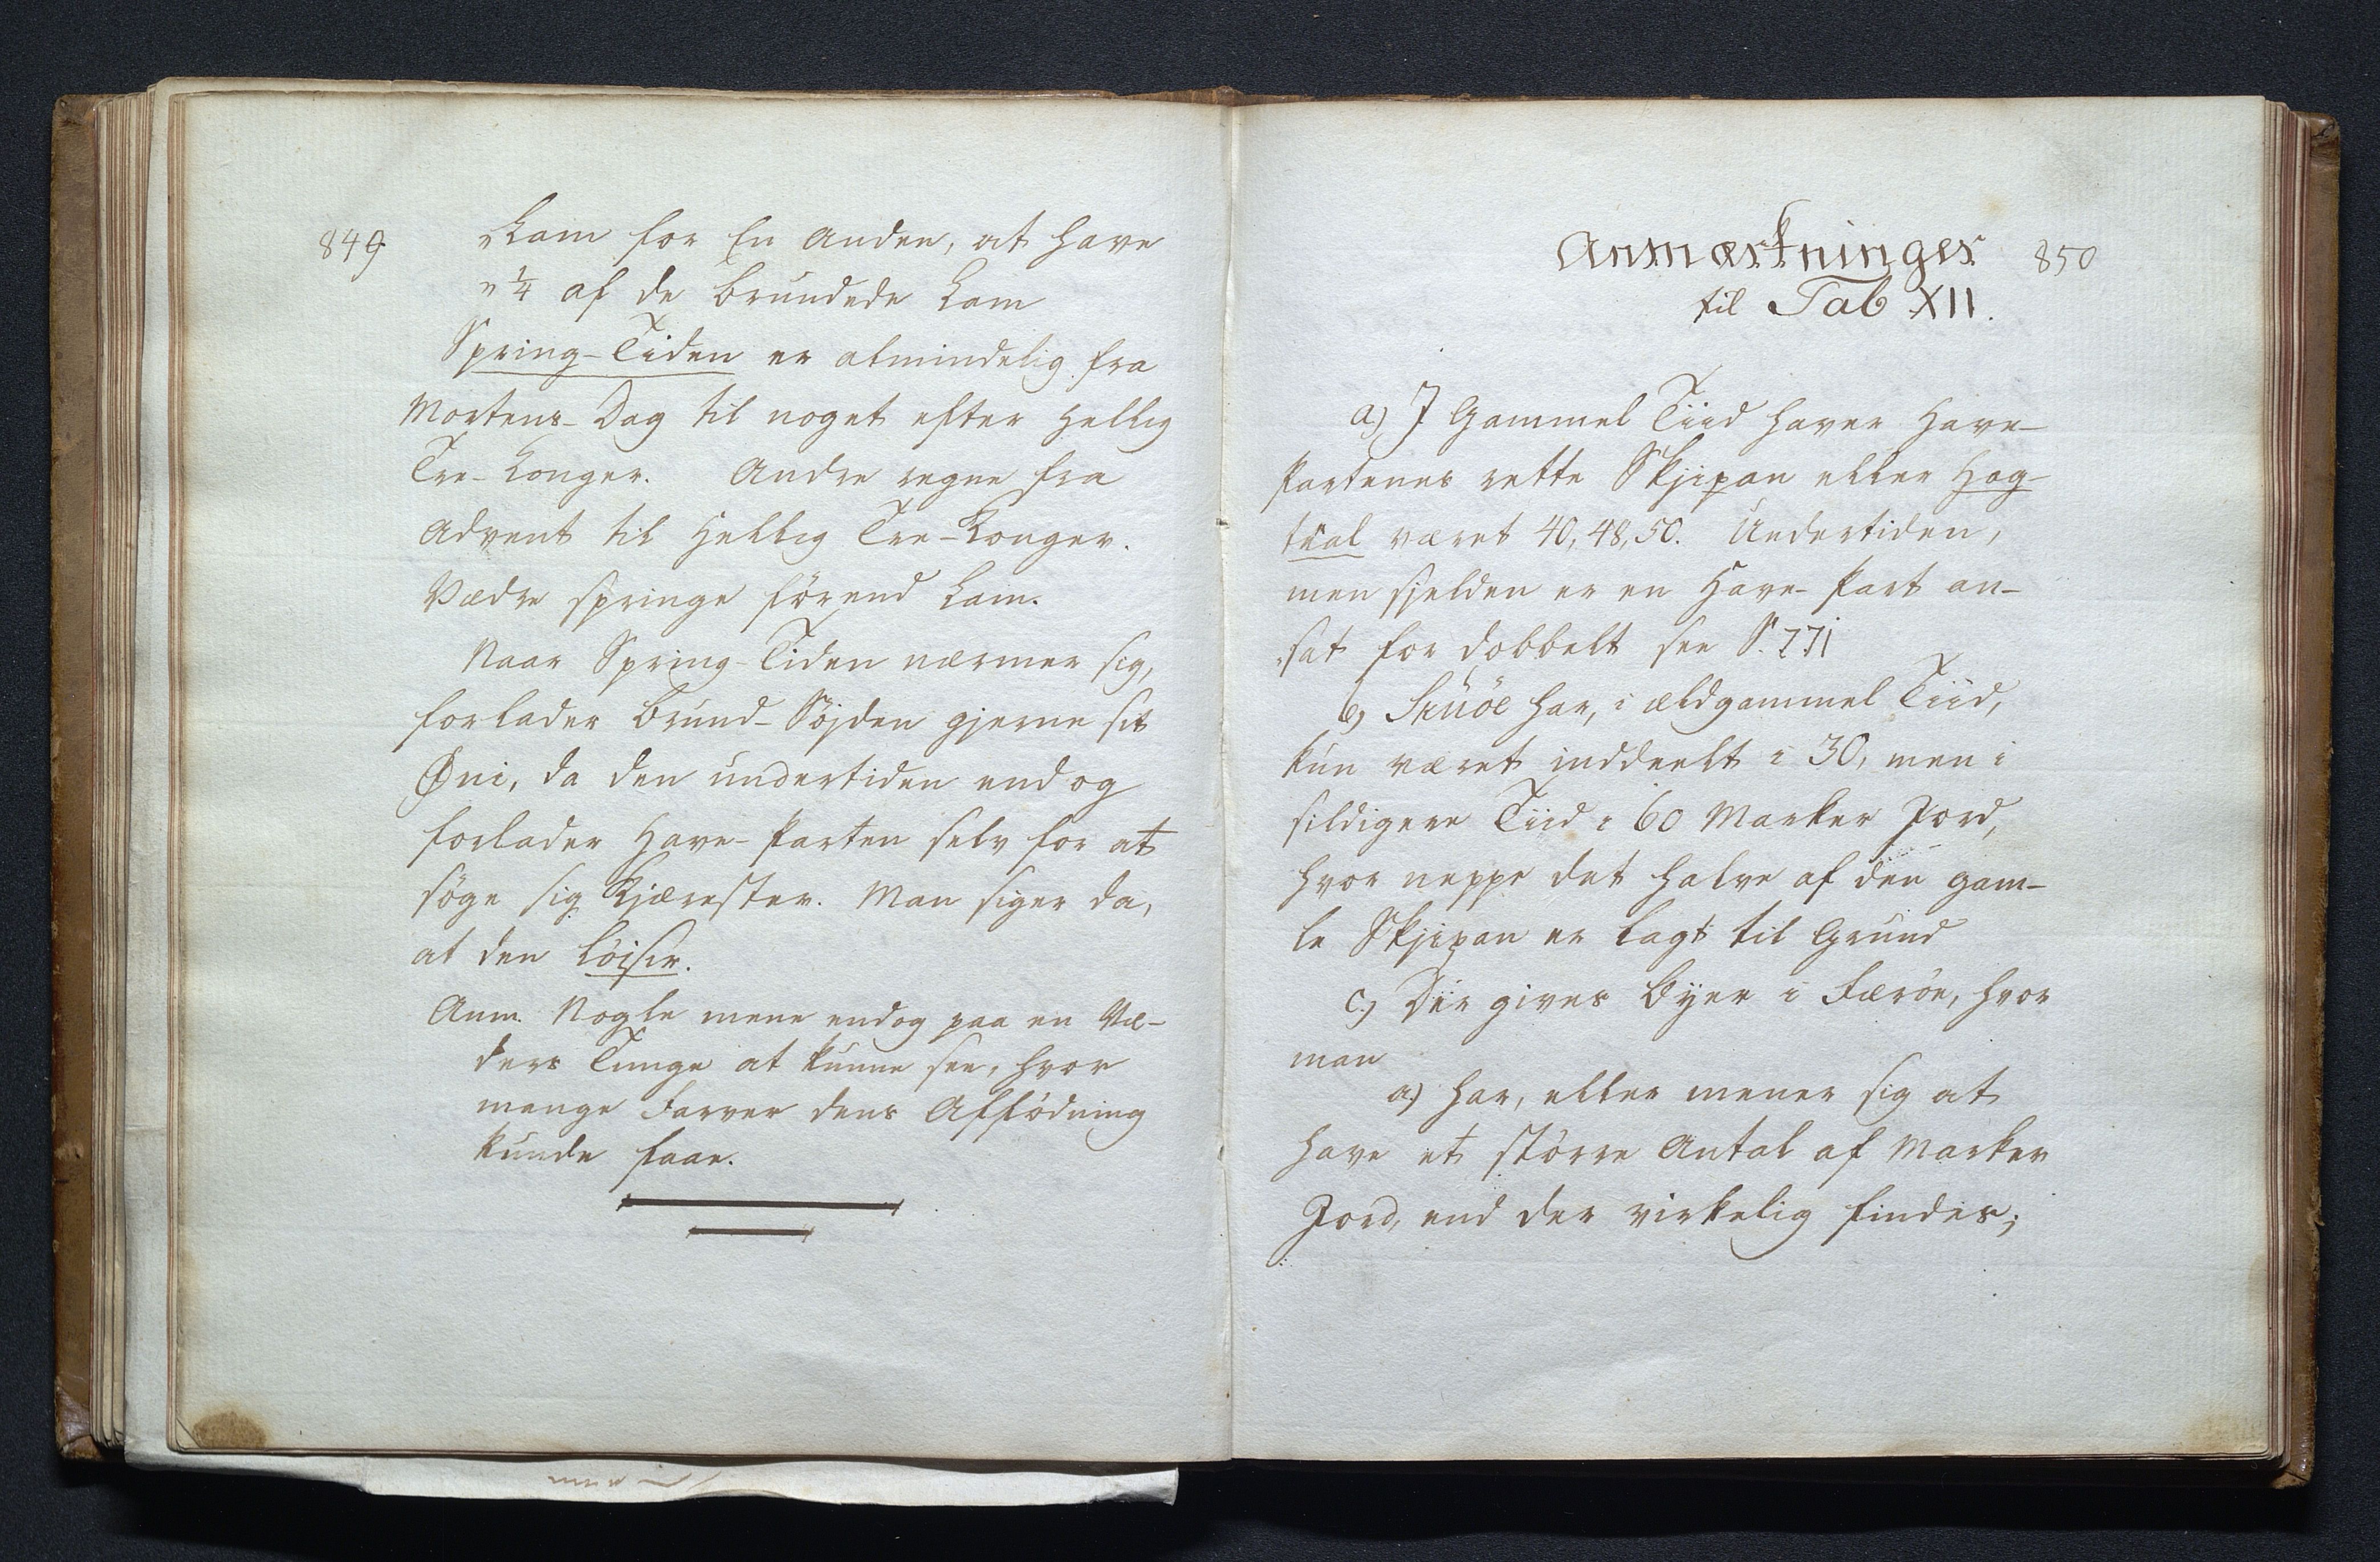 849
„Lam for En Anden, at have
„¼ af de brundede Lam
Spring-Tiden er almindelig fra
Mortens-Dag til noget efter Hellig
Tre-Konger. Andre regne fra
Advent til Hellig Tre-Konger.
Vædre springe förend Lam.
Naar Spring-Tiden nærmer sig,
forlader Brund-Söjden gjerne sit
Øni, da den undertiden endog
forlader Have-Parten selv for at
söge sig Kjærester. Man siger da,
at den löisir.
Anm. Nogle mene endog paa en Væ-
ders Tunge at kunne see, hvor
mange Farver dens Affödning
kunde faae.
Anmærkninger 850
til Tab XII.
a) I Gammel Tiid haver Have-
Partenes rette Skjipan eller Hog-
tŭal været 40, 48, 50. Undertiden,
men sjelden er en Have-Part an-
sat for dobbelt see S. 771
b) Skuöe har, i ældgammel Tiid,
kun været inddeelt i 30, men i
sildigere Tiid i 60 Marker Jord,
hvor neppe det halve af den gam-
le Skjipan er lagt til Grund
c.) Der gives Byer i Færöe, hvor
man
a.) har, eller mener sig at
have et större Antal af Marker
Jord, end der virkelig findes;